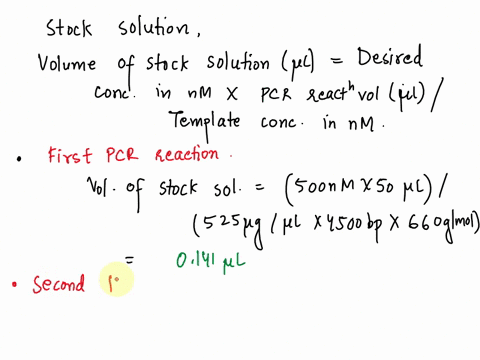 Stock solution,
Volume of stock solution (μL) = Desired
conc. in nM X PCR reactⁿ vol (μL) /
Template conc. in nM.
• First PCR reaction.
Vol. of stock sol. = (500nM X 50 μL) /
(525μg / μL X 4500 bp X 660g/mol)
= 0.141 μL
• Second